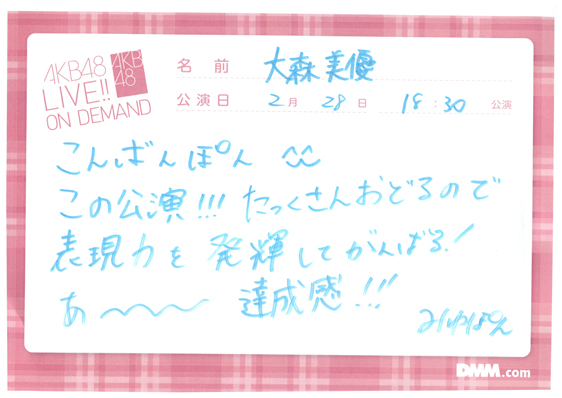 AKB48
LIVE!!
ON DEMAND
AKB
48
名前 大森美優
公演日 2月 28日 18:30 公演
こんばんぽん ^^
この公演!!! たっくさんおどるので
表現力を 発輝してがんばる!
あ〜〜〜 達成感!!!
みゆぽん
DMM.com